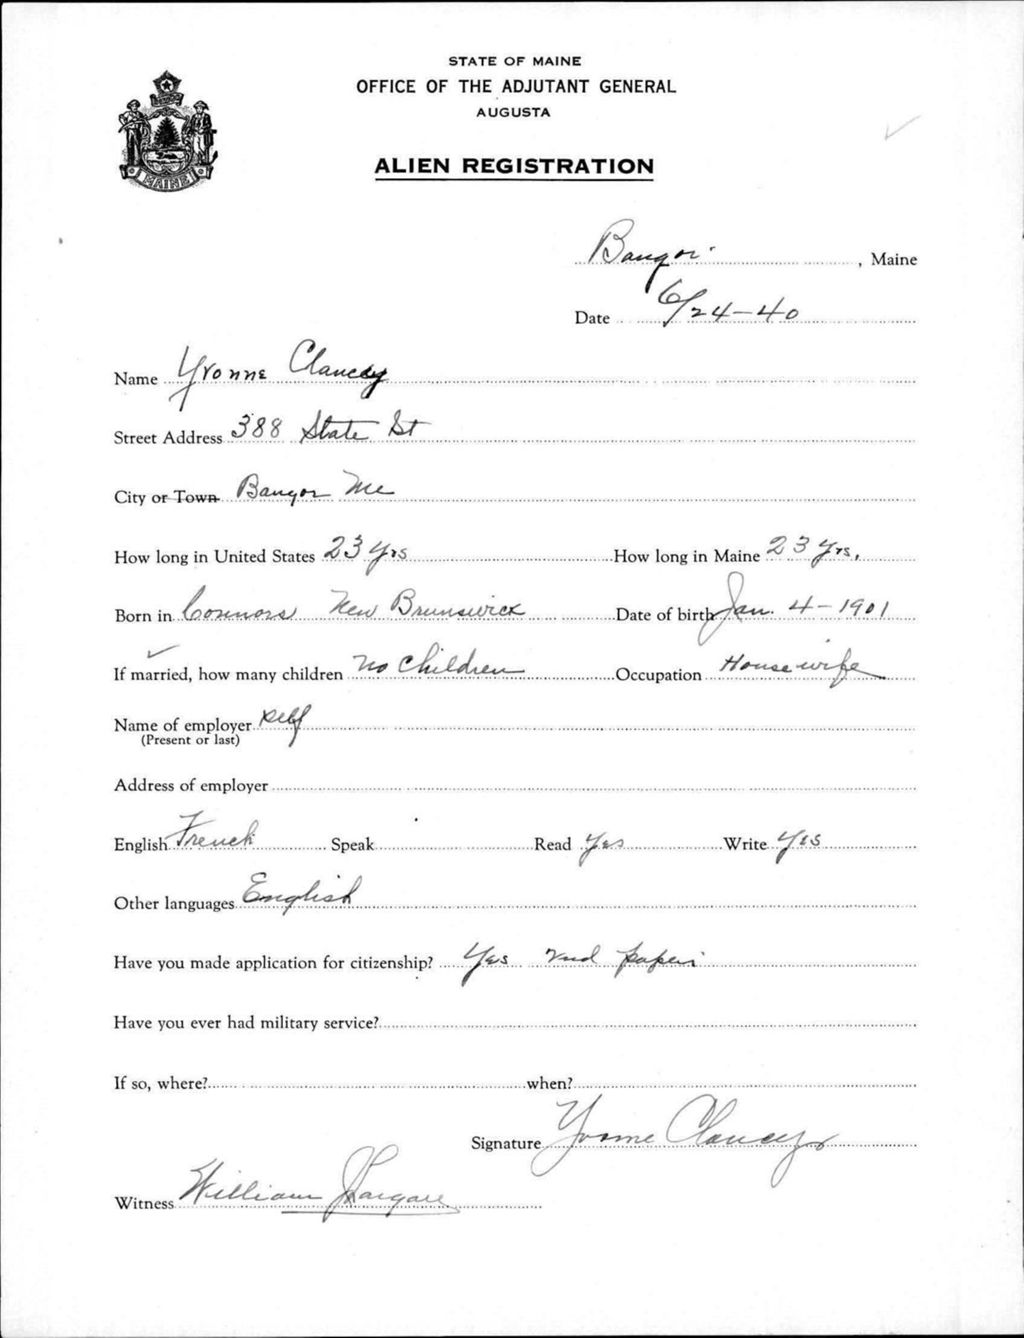 STATE OF MAINE
OFFICE OF THE ADJUTANT GENERAL
AUGUSTA
ALIEN REGISTRATION
MAINE
Bangor, Maine
Date 6/24-40
Name Yvonne Clancey
Street Address 388 State St
City or Town Bangor Me
How long in United States 23 yrs How long in Maine 23 yrs.
Born in Connors New Brunswick Date of birth Jan. 4-1901
If married, how many children no children Occupation Housewife
Name of employer self
(Present or last)
Address of employer
English French Speak Read Yes Write Yes
Other languages English
Have you made application for citizenship? Yes papers
Have you ever had military service?
If so, where? when?
Signature Yvonne Clancey
Witness William